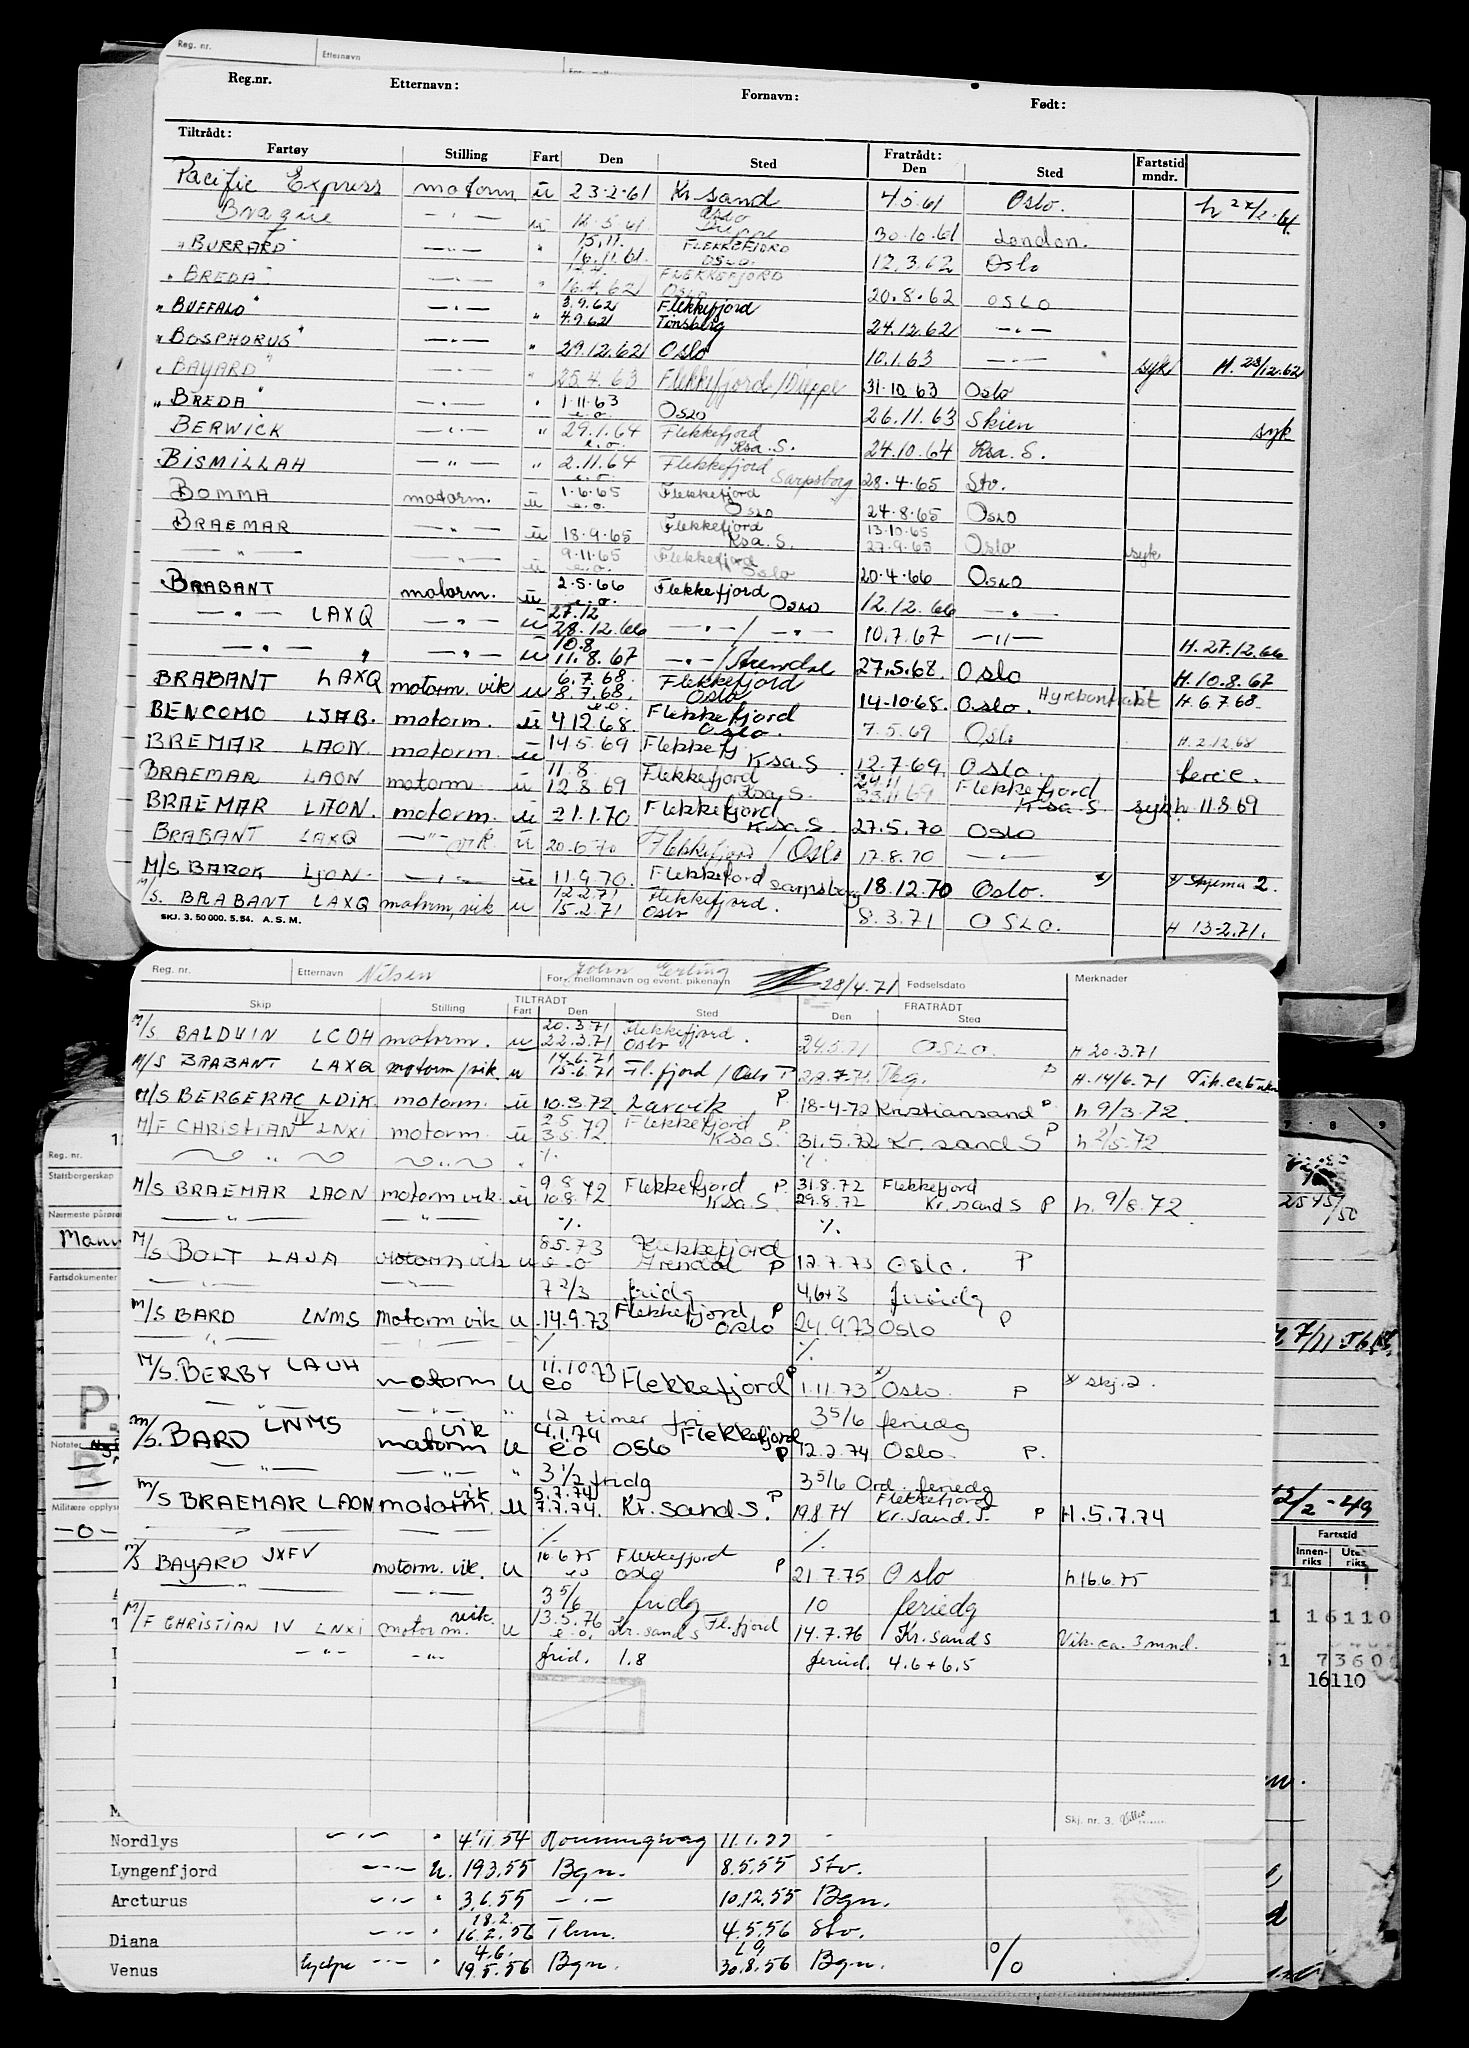 Reg. nr. Etternavn
Reg.nr. Etternavn: Fornavn: Født:
Tiltrådt: Fratrådt: Fartstid
Fartøy Stilling Fart Den Sted Den Sted mndr.
Pacific Express motorm ū 23·2·61 Kr.sand 4.5.61 Oslo.
Braque —·— 30·10·61 London.
"BURRARD" —"— " 15.11. FLEKKEFJORD
16.11.61. OSLO. 12.3.62 Oslo
"BREDA" —"— " FLEKKEFJORD
16.4.62 Oslo 20.8.62 OSLO
"BUFFALO" —"— " 3.9.62 Flekkefjord
4.9.62 Tønsberg 24.12.62 —"—
"BOSPHORUS" —"— " 29.12.62 Oslo 10.1.63 —"— syk H. 28/12.62
"BAYARD" " 25.4.63 Flekkefjord/Dieppe 31.10.63 Oslo
"BREDA" —"— " 1.11.63
e.o. Oslo 26.11.63 Skien syk
BERWICK —"— " 29.1.64 Flekkefjord
e.o. Ksa.S. 24.10.64 Ksa.S.
BISMILLAH —"— " 2.11.64 Flekkefjord
e.o. Sarpsborg 28.4.65 Stv.
BOMMA motorm. ū 1.6.65 Flekkefjord
e.o. Oslo 24.8.65 Oslo
BRAEMAR —"— ū 18.9.65 Flekkefjord 13.10.65
Ksa.S. 27.9.65 Oslo syk
—"— —"— ū 9.11.65 Flekkefjord
e.o. Oslo 20.4.66 Oslo
BRABANT motorm. ū 2.5.66 Flekkefjord
e.o. Oslo 12.12.66 —"—
—"— LAXQ —"— ū 27.12
28.12.66 —"—/—"— 10.7.67 —"— H.27.12.66
—"— " —"— ū 10.8
11.8.67 —"—/Arendal 27.5.68. Oslo H.10.8.67
BRABANT LAXQ motorm.vik u 6.7.68. Flekkefjord
8.7.68. Oslo 14.10.68. Oslo. Hyrekontrakt H.6.7.68.
BENCOMO LJAB. motorm. ū e.o.
4.12.68. Flekkefjord
Oslo. 7.5.69 Oslo H.2.12.68
BREMAR LAON. motorm. ū 14.5.69 Flekkefj
Ksa.S. 12.7.69. Oslo. ferie.
BRAEMAR LAON motorm ū 11.8. Flekkefjord
12.8.69 Ksa.S. Flekkefjord
Ksa.S. syk h.11.8.69
BRAEMAR LAON. motorm. ū 21.1.70 Flekkefjord
Ksa.S. 27.5.70 Oslo
BRABANT LAXQ —"— vik. ū 20.6.70 Flekkefjord/Oslo 17.8.70 —"—
M/S BAROK LJON. —"— ū 11.9.70. Flekkefjord Sarpsborg 18.12.70 Oslo. x) x) Skjema 2.
M/S. BRABANT LAXQ motorm,vik u 12.2.71 Flekkefjord.
15.2.71 Oslo 8.3.71 OSLO. H 13.2.71.
SKJ. 3. 50 000. 5. 54. A. S. M.
Reg. nr. Etternavn Nilsen John Erling
For-, mellomnavn og event. pikenavn 28/4.71 Fødselsdato Merknader
TILTRÅDT FRATRÅDT
Skip Stilling Fart Den Sted Den Sted
M/S BALDUIN LCOH motorm. u 20.3.71 Flekkefjord.
22.3.71 Oslo 24.5.71 OSLO. H 20.3.71
M/S BRABANT LAXQ motorm/vik. u 14.6.71
15.6.71 Fl.fjord/Oslo P Tbg. P H.14/6.71
M/S BERGERAC LDIK motorm. ū 10.3.72 Larvik P 18-4-72 Kristiansand P h 9/3.72
M/F CHRISTIAN IV LNXI motorm. ū 2.5 Flekkefjord P
3.5.72 Ksa S. 31.5.72 Kr.sand S P h 2/5.72
" " ./. ./.
M/S BRAEMAR LAON motorm vik. ū 9.8 Flekkefjord P 31.8.72 Flekkefjord
10.8.72 Ksa.S. 29.8.72 Kr.sand S P h. 9/8.72
—"— —"— ./. ./.
M/S BOLT LAJA motorm vik u 8.5.73 Flekkefjord
e-o Arendal P 12.7.73 Oslo. P
—"— —"— 7 2/3 fridg 4,6+3 feriedg
M/S BARD LNMS Motorm vik u 14.9.73 Flekkefjord P
Oslo 24.9.73 Oslo P
—"— —"— ./. ./.
M/S. BERBY LAUH motorm u 11.10.73
eo Flekkefjord P 1.11.73 x) Oslo. P x) skj.2.
—"— —"— " 12 timer fri 3 5/6 feriedg
M/S. BARD LNMS motorm vik u 4.1.74 Flekkefjord
eo Oslo P 12.2.74 Oslo. P.
—"— —"— " 3 1/2 fridg 3 5/6 Ord. feriedg
M/S BRAEMAR LAON motorm. vik u 5.7.74 P Flekkefjord
7.7.74. Kr.sand S. 19.8.74 Kr.sand.S. P H.5.7.74
—"— —"— ./. ./.
M/S BAYARD JXFV motorm.vik. u 16.6.75 Flekkefjord
eo Oslo P 21.7.75 Oslo h16.6.75
—"— —"— 3 5/6 fridg 10 feriedg
M/F CHRISTIAN IV LNXI motorm. vik. u 13.5.76 Fl.fjord
e.o. Kr.sand S 14.7.76 Kr.sand S Vik.ca. 3 mnd.
—"— —"— frid. 1.8 feried. 4.6+6.5
Skj. nr. 3.
Nordlys —"— " 4.11.54 Honningsvåg —
Lyngenfjord —"— u. 19.3.55 Bgn. 8.5.55 Stv.
Arcturus —"— " 3.6.55 —"— 10.12.55 Bgn.
Diana —"— " 18.2.
16.2.56 4.5.56 Stv.
Venus —"— " 4.6.
19.5.56 Bgn. 30.8.56 Bgn. %
Reg. nr.
Statsborgerskap
Nærmeste pårøre
Fartsdokumenter
Notater
Militære opplysn
—o—
7 8 9
2545/50
12/2-49
Fartstid
Innen-
riks
Ute
riks
16110
7360
16110